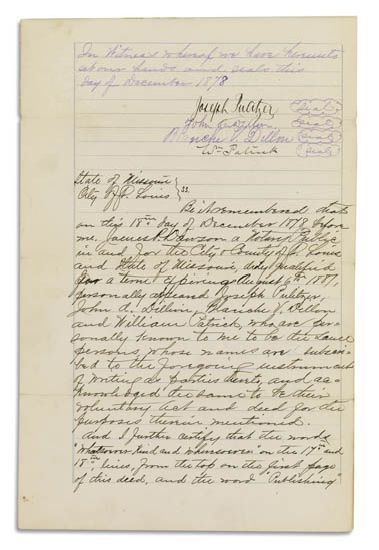 In Witness whereof we have hereunto
set our hands and seals this
day of December 1878
Joseph Pulitzer (Seal)
John A. Dillon (Seal)
Blanche V. Dillon (Seal)
Wm Patrick (Seal)
State of Missouri
City of St. Louis } ss.
Be it remembered that
on this 18th day of December 1878 before
me, James R. Dawson a Notary Public
in and for the City & County of St. Louis
and State of Missouri, duly qualified
for a term expiring August 6th
personally appeared Joseph Pulitzer,
John A. Dillon, Blanche V. Dillon
and William Patrick, who are per-
sonally known to me to be the same
persons, whose names are subscri-
bed to the foregoing instrument
of writing as parties thereto, and ac-
knowledged the same to be their
voluntary act and deed for the
purposes therein mentioned.
And I further certify that the words
"whatsoever kind and wheresoever" on the 17th and
18th lines, from the top on the first page
of this deed, and the word "Publishing"